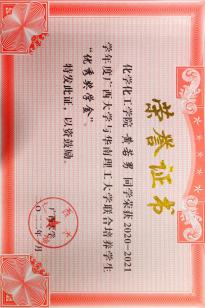 荣誉证书
化学化工学院 黄若男 同学荣获 2020-2021
学年度广西大学与华南理工大学联合培养学生
“优秀奖学金”。
特发此证，以资鼓励。